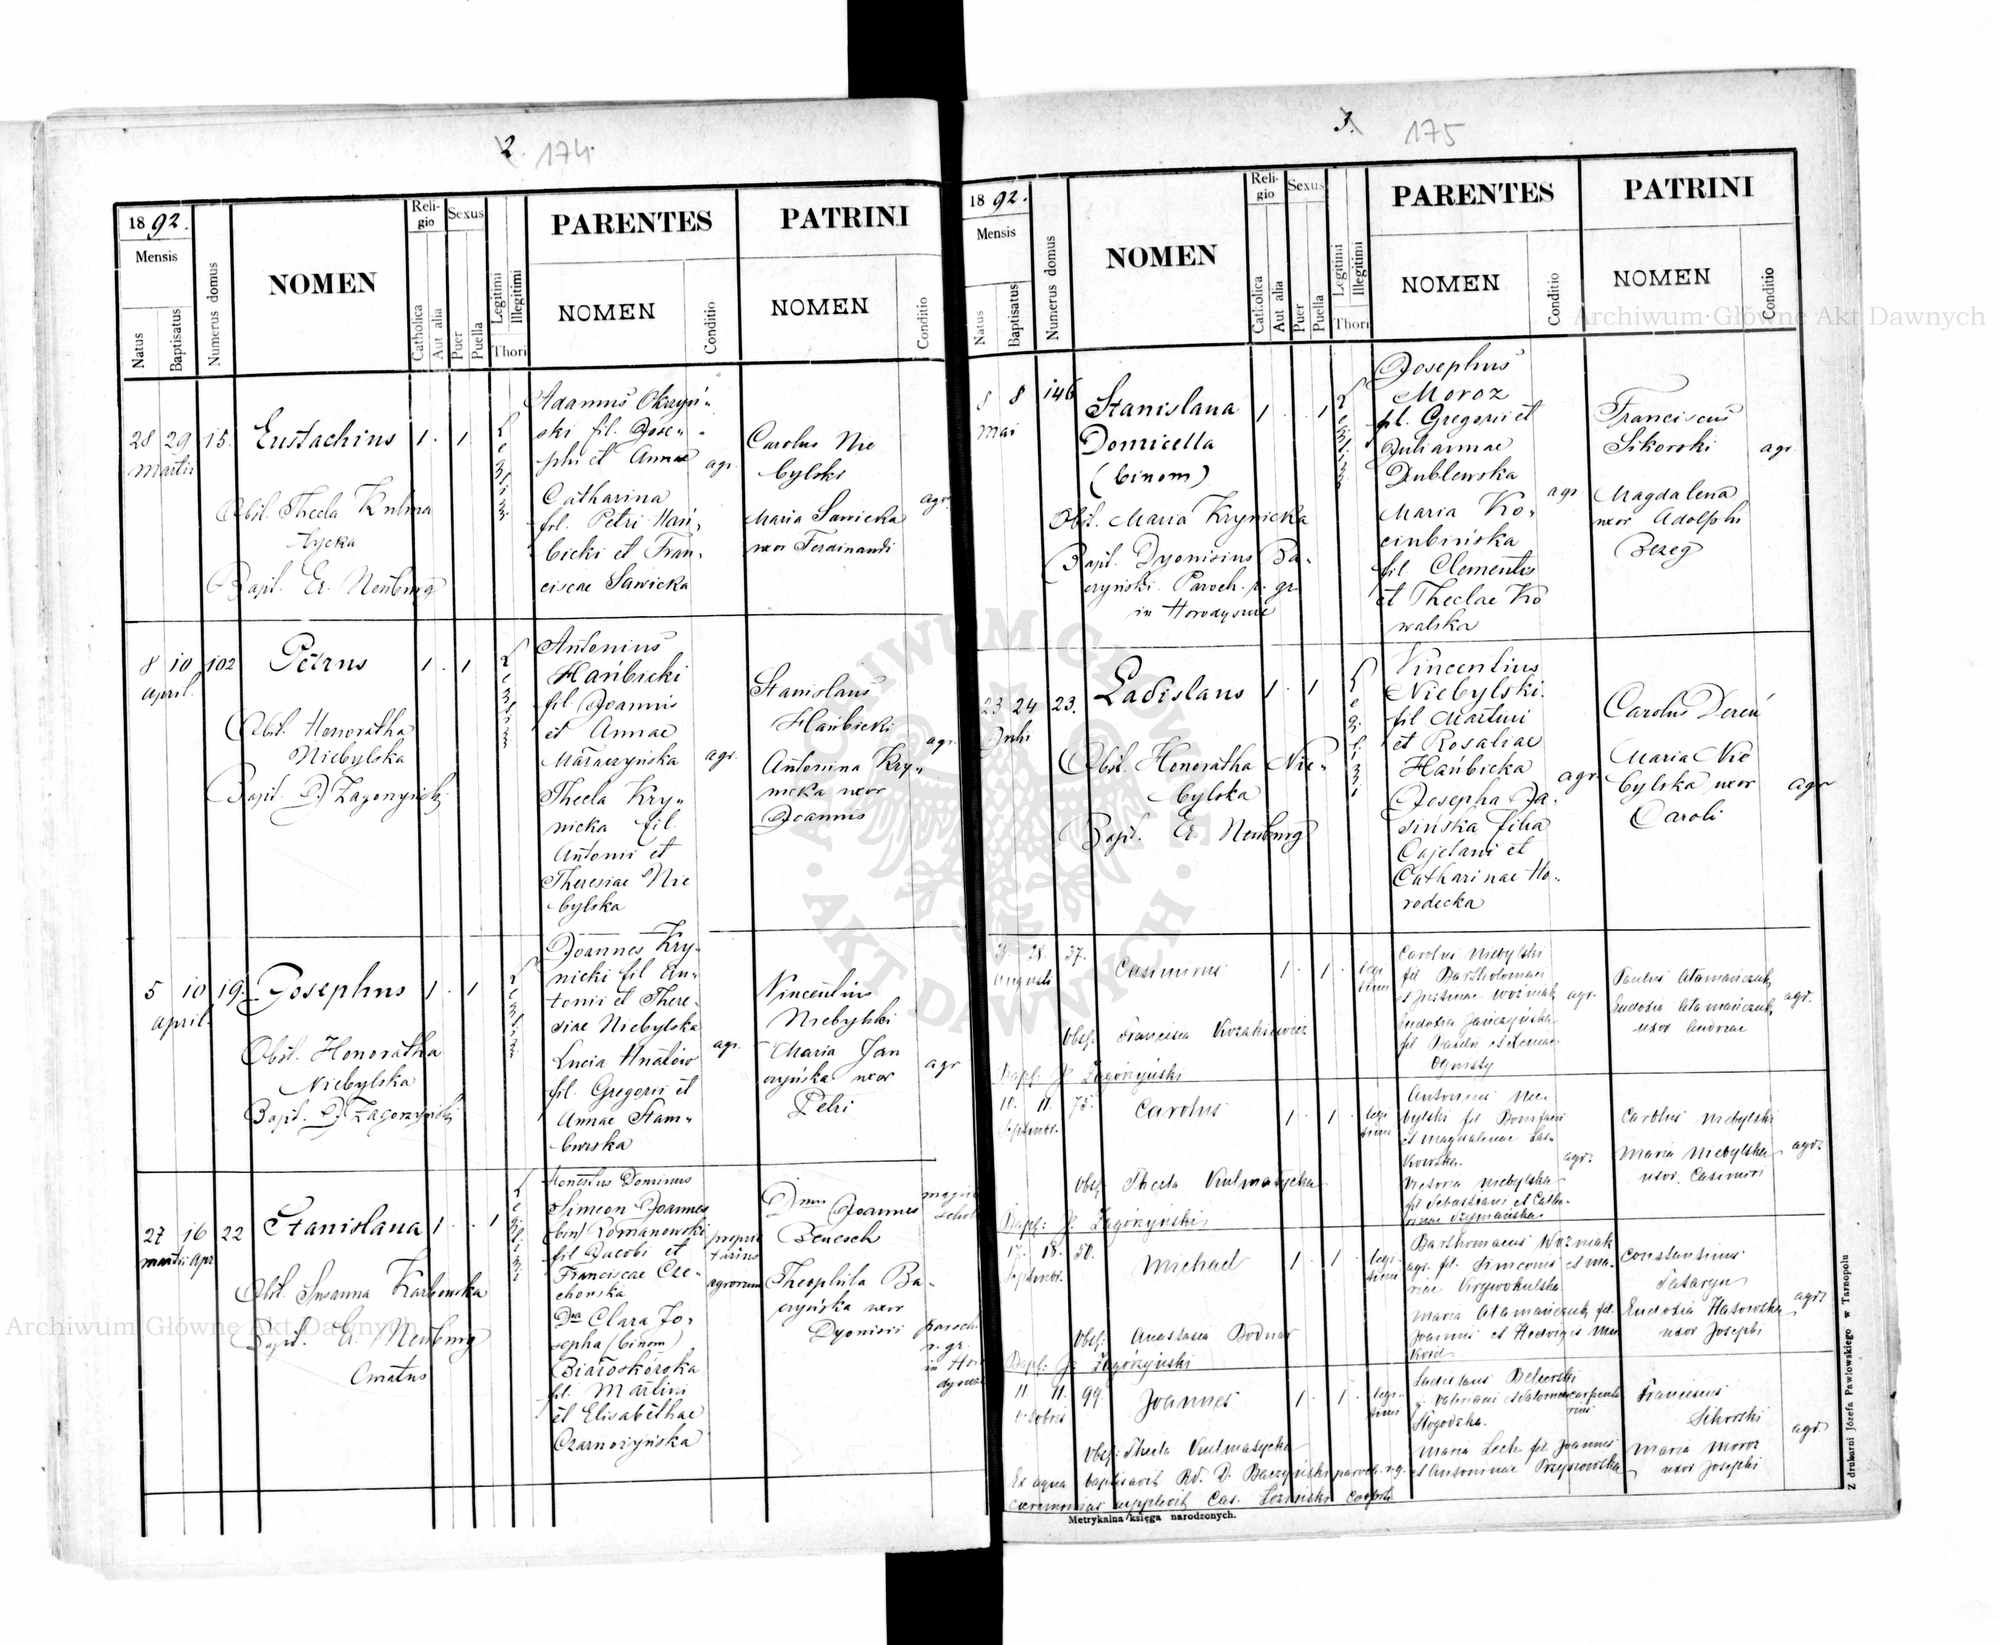 2. 174.
1892.
Mensis
Natus
Baptisatus
Numerus domus
NOMEN
Religio
Catholica
Aut alia
Sexus
Puer
Puella
Legitimi
Illegitimi
Thori
PARENTES
NOMEN
Conditio
PATRINI
NOMEN
Conditio
28 29 15. Eustachius 1 . 1
Martii
Obst. Thecla Kulma
tycka
Bapt. Er. Neuburg
Adamus Okrzyń„
ski fil. Jose„
phi et Annae
Catharina
fil. Petri Hań„
bicki et Fran„
ciscae Sawicka
agr.
Carolus Nie
bylski
Maria Sawicka
uxor Ferdinandi
agr.
8 10 102 Petrus 1 . 1
April.
Obst. Honoratha
Niebylska
Bapt. J. Zagórzyński
Antonius
Hańbicki
fil Joannis
et Annae
Thecla Kry„
nicka fil.
Antonii et
Theresiae Nie
bylska
agr.
Stanislaus
Hańbicki
Antonina Kry„
nicka uxor
Joannis
agr.
5 10 19. Josephus 1 . 1
April.
Obst. Honoratha
Niebylska
Bapt. J. Zagorzyński
Joannes Kry„
nicki fil An„
tonii et There„
siae Niebylska
Lucia Hnatów
fil. Gregorii et
Annae Stam„
burska
agr.
Vincentius
Niebylski
Maria Jan
czyńska uxor
Petri
agr
27 16 22 Stanislaua 1 . . 1
martii Apr
Obst. Susanna Karbowska
Bapt. Er. Neuburg
Curatus
Honestus Dominus
Simeon Joannes
(bin) Romanowski
fil Jacobi et
Franciscae Cze„
chowska
Dna Clara Jo„
sepha (binom)
Białoskórska
fil. Martini
et Elisabethae
Czarnożyńska
proprie
tarius
agrorum
Dnus Joannes
Benesch
Theophila Ba„
czyńska uxor
Dyonisii
parochi
r. gr.
in Horo
dyszcze
3. 175
1892.
Mensis
Natus
Baptisatus
Numerus domus
NOMEN
Religio
Catholica
Aut alia
Sexus
Puer
Puella
Legitimi
Illegitimi
Thori
PARENTES
NOMEN
Conditio
PATRINI
NOMEN
Conditio
8 8 146 Stanislaua 1 . . 1
Mai
Domicella
(binom)
Obst. Maria Krynicka
Bapt. Dyonisius Ba„
czyński Paroch. r. gr
in Horodyszcze
Josephus
Moroz
fil. Gregorii et
Juliannae
Dublewska
Maria Ko„
ciubińska
fil Clementis
et Theclae Ko
walska
agr.
Franciscus
Sikorski
Magdalena
uxor Adolphi
Brzeg
agr
23 24 23. Ladislaus 1 . 1
Julii
Obst. Honoratha Nie„
bylska
Bapt. Er. Neuburg
Vincentius
Niebylski.
fil Martini
et Rosaliae
Hańbicka
Josepha Ja„
sińska filia
Cajetani et
Catharinae Ho„
rodecka
agr
Carolus Dereń
Maria Nie
bylska uxor
Caroli
agr
28. 37. Casimirus 1 . 1 . legi
timi
Augusti
Obst. Francisca Kozakiewicz
Bapt. J. Zagórzyński
Carolus Niebylski
fil Bartholomaei
et Justinae Woźniak
Eudoxia Janczyńska
agr.
Paulus Atamańczuk
Eudoxia Atamańczuk
uxor Andreae
agr.
10. 11. 75. Carolus 1 . 1 . legi
timi
Septembr.
Obst. Thecla Kulmatycka
Bapt: J. Zagórzyński
Antonius Nie„
bylski fil Bonifacii
et Magdalenae Las„
kowska.
Victoria Niebylska
fil Sebastiani et Catha„
rinae Szymańska
agr.
Carolus Niebylski
Maria Niebylska
uxor Casimiri
agr.
17. 18. 50. Michael 1 . 1 . legi
timi
Septembr.
Obst: Anastasia Bodnar
Bapt: J. Zagórzyński
Bartholomaeus Woźniak
agr. fil. Simeonis et Ma„
riae Krzywokulska
Maria Atamańczuk fil.
Joannis et Hedvigis
Constantinus
Tataryn
Eudoxia Hasowska
uxor Josephi
agr.
11 11. 99. Joannes 1 . 1 . legi
timi
Octobris
Obst: Thecla Kulmatycka
Ex aqua baptisavit Rd. D. Baczyński paroch. r. g.
ceremonias supplevit Cas. Łoziński Coop.
Ladislaus Belwerski
Maria Lech fil. Joannis
et Antoninae Przyszowska
Franciscus
Sikorski
Maria Moroz
uxor Josephi
agr.
Metrykalna księga narodzonych.
Z drukarni Józefa Pawłowskiego w Tarnopolu
Archiwum Główne Akt Dawnych
Archiwum Główne Akt Dawnych
ARCHIWUM GŁÓWNE AKT DAWNYCH